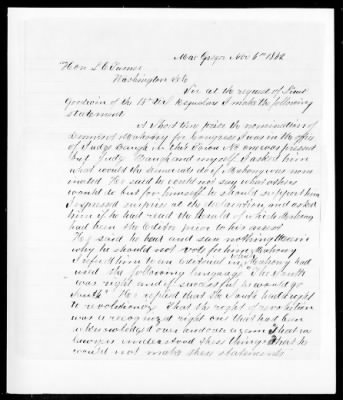 MacGregor Nov 6th 1862
Hon L C Turner
Washington D.C.
Sir at the request of Lieut
Goodwin of the 13th U.S. Regulars I make the following
statement
A short time prior the nomination of
Dennis Mahony for Congress I was in the office
of Judge Baugh in this Town No one was present
but Judge Baugh and myself I asked him
what would the Democrats do if Mahony was nom
inated He said he could not say what others
would do but for himself he should support him
I expressed surprise at the declaration and asked
him if he had read the Herald of which Mahony
had been the Editor prior to his arrest
He said he had and saw nothing therein
why he should not vote for him
I refered him to an editorial in which Mahony had
used the following language "The South
was right and if successful it would go
South" He replied that the South had a right
to revolutionize That the right of revolution
was a recognized right one that had been
acknowledged over and over again That a
lawyer understood these things That he
would not make these statements